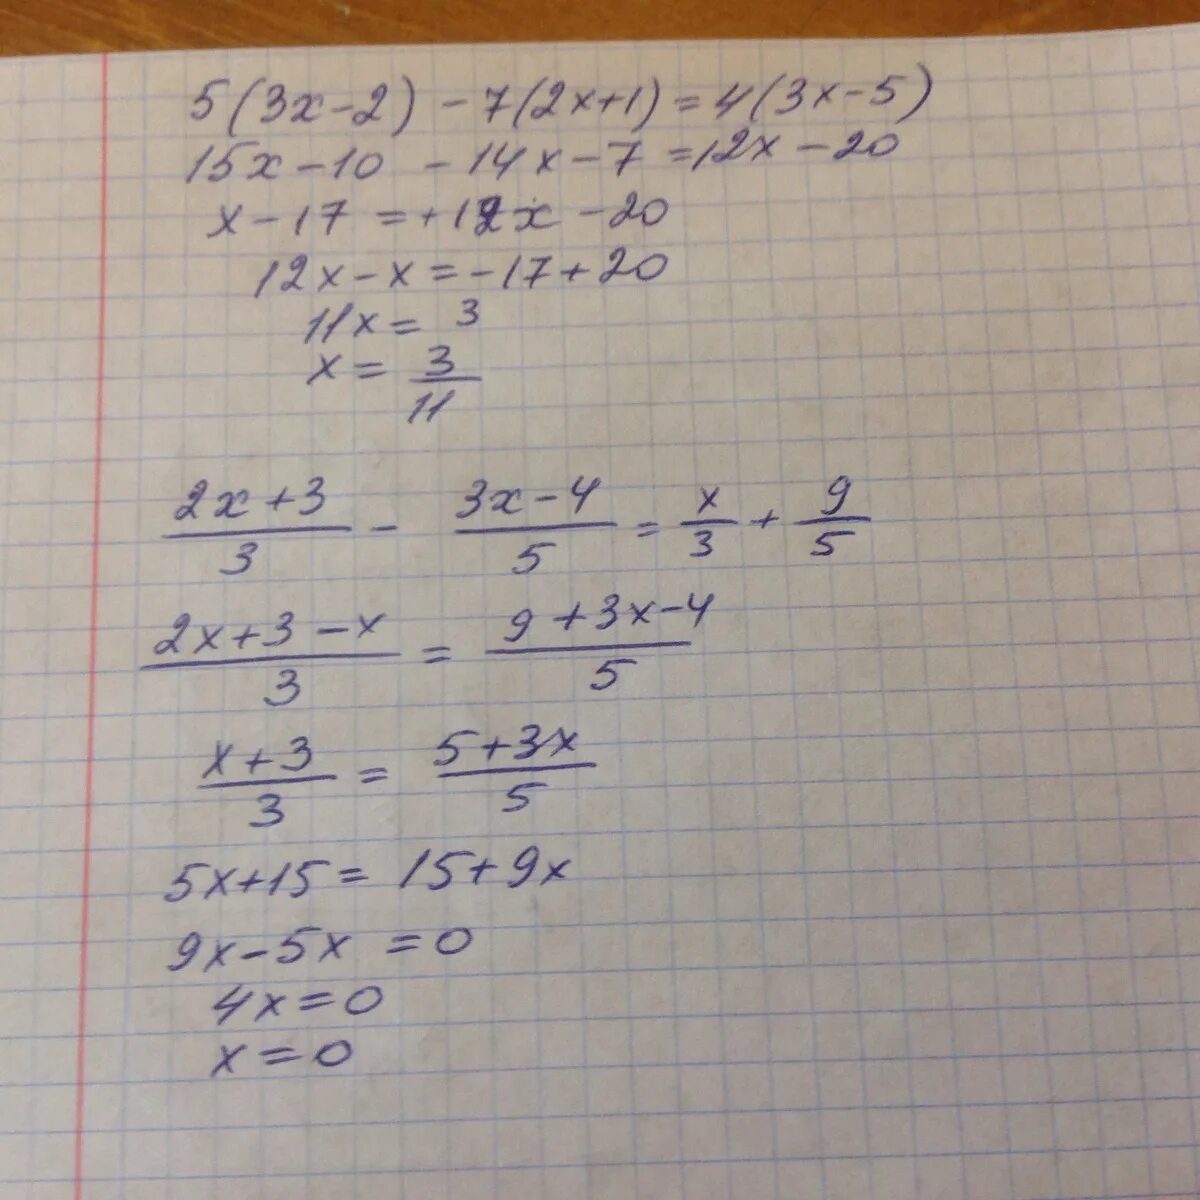 5(3x-2) - 7(2x+1) = 4(3x-5)
15x - 10 - 14x - 7 = 12x - 20
x - 17 = +12x - 20
12x - x = -17 + 20
11x = 3
x = 3/11
(2x+3)/3 - (3x-4)/5 = x/3 + 9/5
(2x+3-x)/3 = (9+3x-4)/5
(x+3)/3 = (5+3x)/5
5x+15 = 15+9x
9x-5x = 0
4x = 0
x = 0